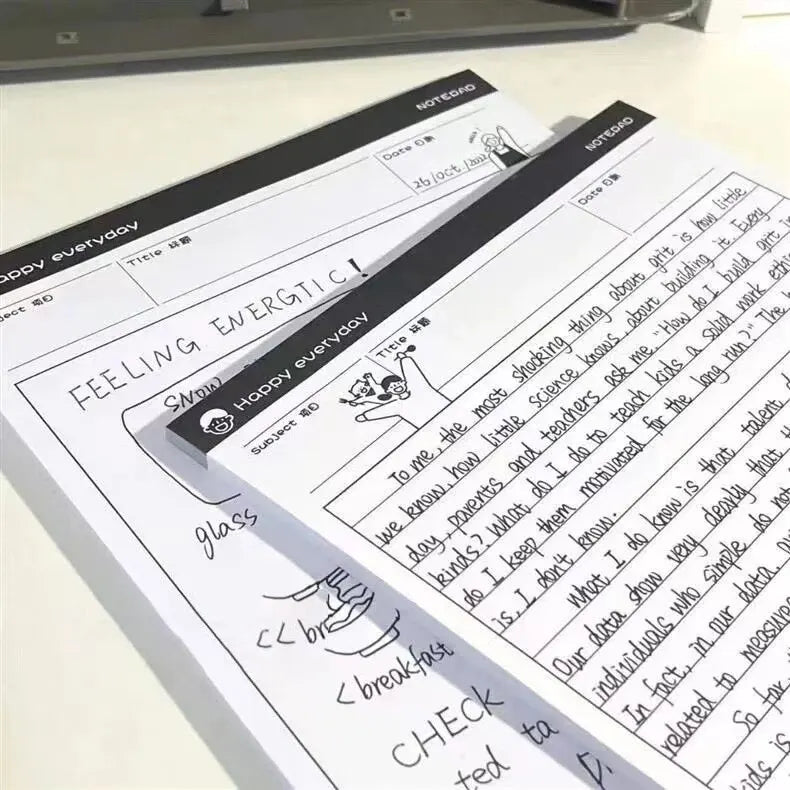 NOTEPAD
appy everyday
ject 项目
Title 标题
Date 日期
26/Oct./2022
FEELING ENERGTIC!
SNOW
glass
<< br
< breakfast
CHECK
ted to
NOTEPAD
Happy everyday
Subject 项目
Title 标题
Date 日期
To me, the most shocking thing about grit is how little
we know, how little science knows, about building it. Every
day, parents and teachers ask me. "How do I build grit in
kinds? What do I do to teach kids a solid work ethic
do I keep them motivated for the long run?" The h
is. I don't know.
What I do know is that talent d
Our data show very clearly that th
individuals who simple do not
In fact, in our data, ou
related to measures
So far, 
kids is